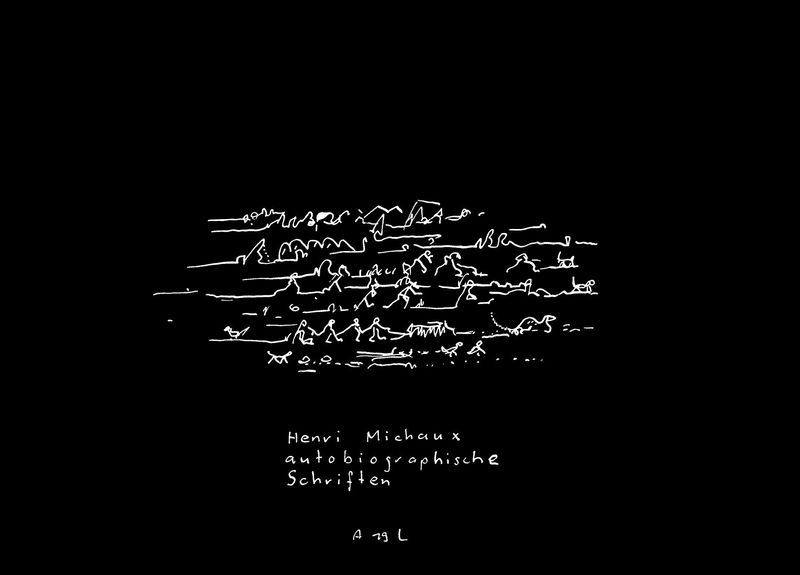 Henri Michaux
autobiographische
Schriften
A 19 L